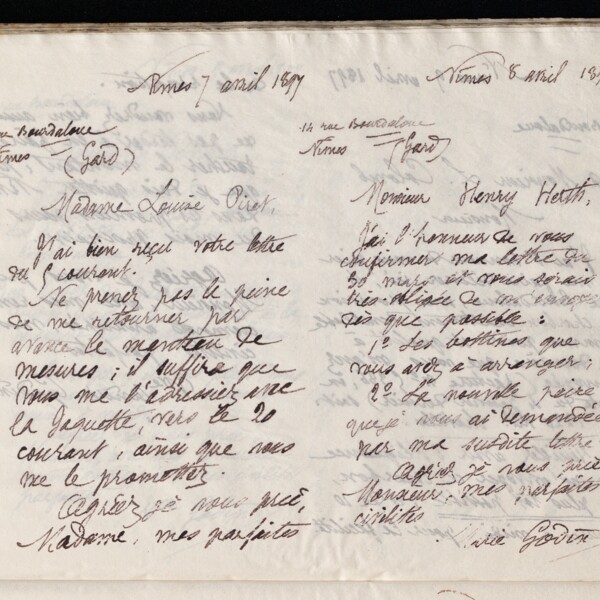 Nîmes 7 avril 1897
rue Bourdaloue
Nîmes (Gard)
Madame Louise Piret,
J'ai bien reçu votre lettre
du 5 courant.
Ne prenez pas la peine
de me retourner par
avance le manteau de
mesures ; il suffira que
vous me l'adressiez avec
la Jaquette, vers le 20
courant, ainsi que vous
me le promettez.
Agréez je vous prie,
Madame, mes parfaites
Nîmes 8 avril 189
14 rue Bourdaloue
Nîmes (Gard)
Monsieur Henry Herth,
J'ai l'honneur de vous
confirmer ma lettre du
30 mars et vous serais
très obligée de m'envoyer
dès que possible :
1º Les bottines que
vous avez à arranger ;
2º La nouvelle paire
que je vous ai demandée
par ma susdite lettre
Agréez je vous prie
Monsieur, mes parfaites
civilités
Godin